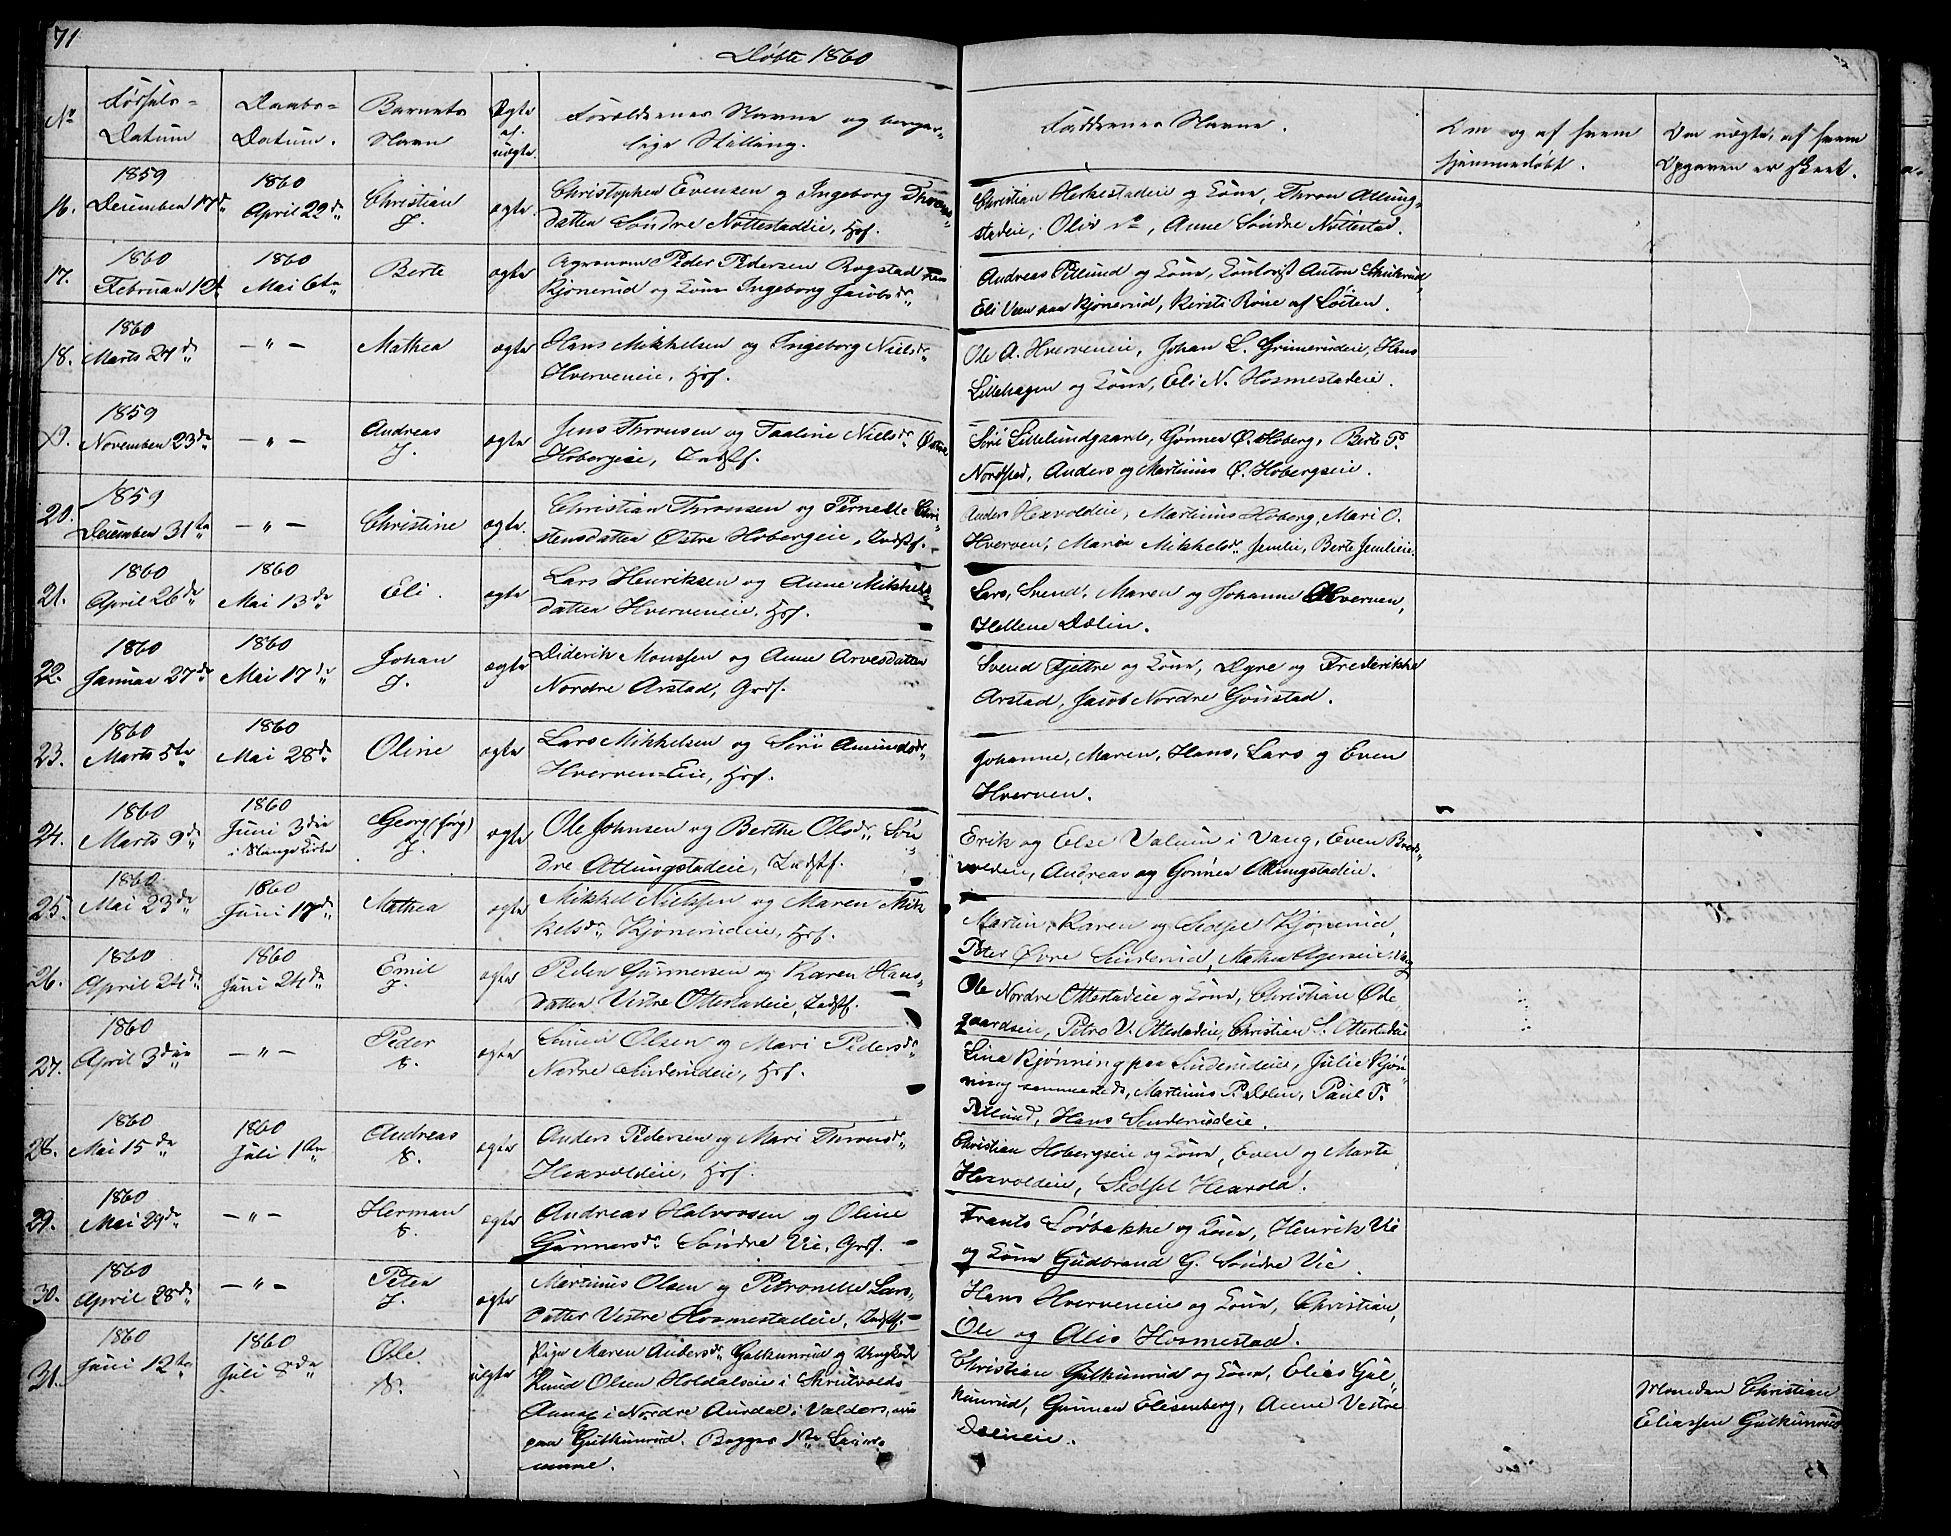 71
Døbte 1860
No
Fødsels-
Datum
Daabs-
Datum.
Barnets
Navn
Ægte
el.
uægte.
Forældrenes Navne og borger-
lige Stilling.
Faddernes Navne.
Om og af hvem
hjemmedøbt.
Om uægte, af hvem
Opgaven er skeet.
16.
1859
December 17de
1860
April 22de
Christian
J.
ægte.
Christopher Evensen og Ingeborg Throns-
datter Søndre Nøttestadeie, Hsf.
Christian Horkestadeie og Kone, Thron Atlung-
stadeie, Oliv do, Anne Søndre Nøttestad.
17.
1860
Februar 12te
1860
Mai 6te
Berte
ægte
Agronom Peder Pedersen Rogstad
Kjønerud og Kone Ingeborg Jacobsdr
Andreas Pellund og Kone, Anton
Eli Veen paa Kjønerud, Kirsti Rone af Løiten.
18.
1860
Marts 24de
— " —
Mathea
ægte
Hans Mikkelsen og Ingeborg Nielsdr
Hverveneie, Hsf.
Ole A. Hverveneie, Johan L. Grimerudeie, Hans
Lillehagen og Kone, Eli N. Hosmestadeie.
19.
1859
November 23de
— " —
Andreas
J.
ægte
Jens Thronsen og Pauline Nielsdr Østre
Hobergeie, Indstf.
Siri Lillelundgaard, Gunner Ø. Hoberg, Berte P.
Anders og Martinus Ø. Hobergseie.
20.
1859
December 31te
— " —
Christine
ægte.
Christian Thronsen og Pernelle Chri-
stensdatter Østre Hobergeie, Indstf.
Anders Hexvoldeie, Martinus Hoberg, Mari O.
Hverven, Maren Mikkelsdr Jemlie, Berte Jemlieie.
21.
1860
April 26de
1860
Mai 13de
Eli.
ægte
Lars Henriksen og Anne Mikkels-
datter Hverveneie, Hsf.
Lars, Svend, Maren og Johanne Hverven,
Hellene Dælin.
22.
1860
Januar 27de
1860
Mai 17de
Johan
J.
ægte
Diderik Monssen og Anne Arvesdatter
Nordre Arstad, Grdf.
Svend Fjettre og Kone, Dyre og Frederikke
Arstad, Jacob Nordre Gønstad.
23.
1860
Marts 5te
1860
Mai 28de
Oline
ægte
Lars Mikkelsen og Siri Amundsdr
Hverven-Eie, Hsf.
Johanne, Maren, Hans, Lars og Even
Hverven.
24.
1860
Marts 9de
1860
Juni 3die
i Stange Kirke
Georg (Jørg)
J.
ægte
Ole Johnsen og Berthe Olsdr Søn
dre Atlungstadeie, Indstf.
Erik og Else Valum i Vang, Even
Andreas og Gunner Atlungstadeie.
25.
1860
Mai 23de
1860
Juni 17de
Mathea
ægte
Mikkel Nielssen og Maren Mik
kelsdr Kjønerudeie, Hsf.
Martin, Karen og Sidsel Kjønerud,
Peter Øvre Sinderud, Mathea
26.
1860
April 24de
1860
Juni 24de
Emil
J.
ægte
Peder Gunnersen og Karen Hans-
datter Vestre Ottestadeie, Indstf.
Ole Nordre Ottestadeie og Kone, Christian Øde
gaardseie, Petro V. Ottestadeie, Christian S. Ottestadeie
27.
1860
April 3die
— " —
Peder
8.
ægte
Simen Olsen og Mari Pedersdr
Nedre Sinderudeie, Hsf.
Lina Kjønning paa Sinderudeie, Julie Kjøn-
ning sammesteds, Martinus P. Paul P.
Pellund, Hans Sinderudeie.
28.
1860
Mai 15de
1860
Juli 1ste
Andreas
8.
ægte
Anders Pedersen og Mari Thronsdr
Hexvoldeie, Hsf.
Christian Hobergseie og Kone, Even og Marte
Hexvoldeie, Sidsel Hexvold.
29.
1860
Mai 29de
— " —
Herman
8.
ægte
Andreas Halvorsen og Oline
Gunnersdr Søndre Vie, Grdf.
Frants Sørbakke og Kone, Henrik Vie
og Kone Gudbrand G. Søndre Vie.
30.
1860
April 28de
— " —
Peter
J.
ægte
Martinus Olsen og Petronelle Lars-
datter Vestre Hosmestadeie, Indstf.
Hans Hverveneie og Kone, Christian,
Ole og Alis Hosmestad.
31.
1860
Juni 12te
1860
Juli 8de
Ole
8.
uægte
Pige Maren Andersdr Gulkunrud og Ungkarl
Knud Olsen Holdalseie i Skrutvolds
Annex i Nordre Aurdal i Valders, nu
paa Gulkunrud. Begges 1ste Leier-
maal.
Christian Gulkunrud og Kone, Elias Gul-
kunrud, Gunner Elisenberg, Anne Vestre
Dælineie.
Manden Christian
Eliassen Gulkunrud